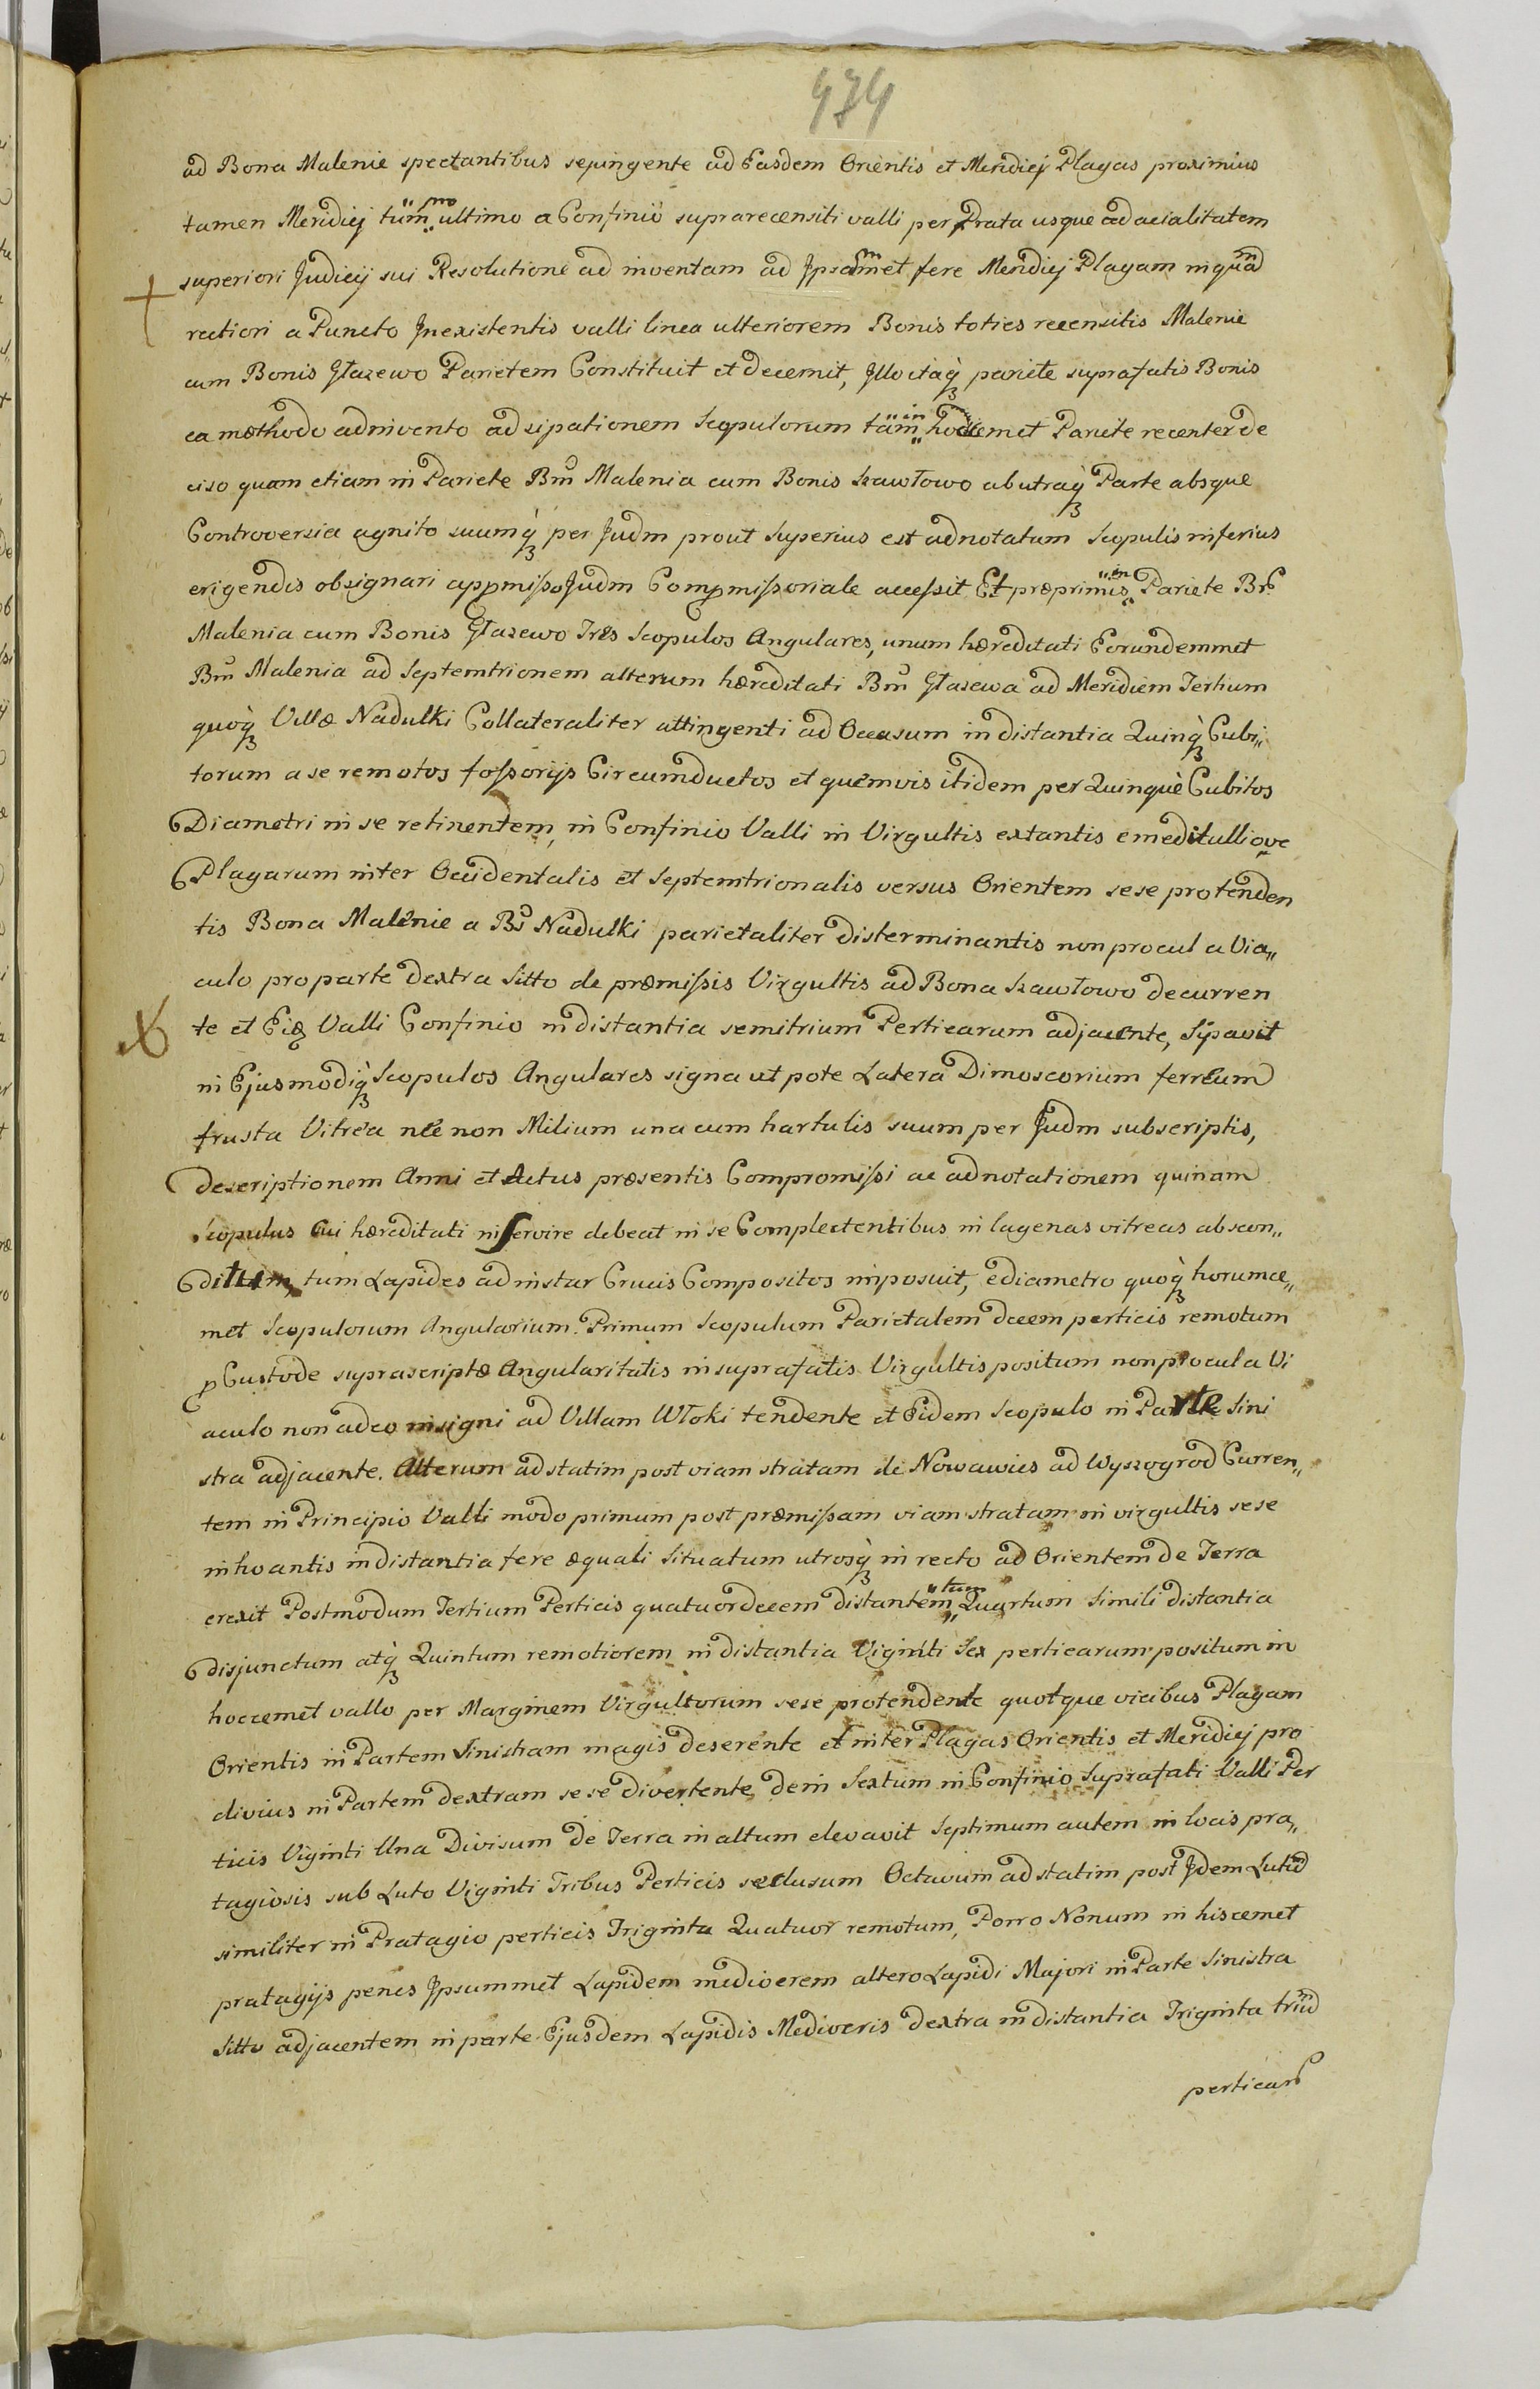 474
ad Bona Malenie spectantibus sejungente ad Easdem Orientis et Meridiej Plagas proximius
tamen Meridiej tum „pro„ ultimo a Confinio suprarecensiti valli per Prata usque ad acialitatem
superiori Judicij sui Resolutione ad inventam ad Ipsammet fere Meridiej Plagam inquam
rectiori a Puncto Inexistentis valli linea ulteriorem Bonis toties recensitis Malenie
cum Bonis Głazewo Parietem Constituit et decernit, Illo itaq3 pariete suprafatis Bonis
ea mæthodo adinvento ad sipationem Scopulorum tam „in„ hocemet Pariete recenter de
ciso quam etiam in Pariete Brũ Malenia cum Bonis Szawłowo ab utraq3 Parte absque
Controversia agnito suumq3 per Judm prout Superius est adnotatum Scopulis inferius
erigendis obsignari appmisso Judm Compmissoriale accessit Et præprimis „in„ Pariete Br̃
Malenia cum Bonis Głazewo Tres Scopulos Angulares, unum hæreditati Eorundemmet
Brũ Malenia ad Septemtrionem alterum hæreditati Brũ Głazewa ad Meridiem Tertium
quoq3 Villæ Nadulki Collateraliter attingenti ad Occasum in distantia Quinq3 Cubi„
torum a se remotos fossorijs Circumductos et quemvis itidem per Quinque Cubitos
Diametri in se retinentem, in Confinio Valli in Virgultis extantis e meditullio ve
Plagarum inter Occidentalis et Septemtrionalis versus Orientem sese protenden
tis Bona Malenie a Bs Nadulki parietaliter disterminantis non procul a Via„
culo pro parte dextra Sitto de præmissis Virgultis ad Bona Szawłowo decurren
te et Eid Valli Confinio in distantia semitrium Perticarum adjacente, Sipavit
in Ejusmodiq3 Scopulos Angulares signa utpote Latera Dimoscorium ferreum
frusta Vitrea nec non Milium una cum hartulis suum per Judm subscriptis,
descriptionem Anni et Actus præsentis Compromissi ac adnotationem quinam
Scopulus Cui hæreditati inservire debeat in se Complectentibus in lagenas vitreas abscon„
ditum, tum Lapides ad instar Crucis Compositos imposuit, e diametro quoq3 horumce„
met Scopulorum Angularium. Primum Scopulum Parietalem decem perticis remotum
p Custode suprascriptæ Angularitatis in suprafatis Virgultis positum non procul a Vi
aculo non adeo insigni ad Villam Włoki tendente et Eidem Scopulo in Parte Sini
stra adjacente. Alterum adstatim post viam stratam de Nowawies ad Wyszogrod Curren„
tem in Principio Valli modo primum post præmissam viam stratam in virgultis sese
inhoantis in distantia fere æquali Situatum utrosq3 in recto ad Orientem de Terra
erexit Postmodum Tertium Perticis quatuordecem distantem „tum„ Quartum Simili distantia
disjunctum atq3 Quintum remotiorem in distantia Viginti Sex perticarum positum in
hoccemet vallo per Marginem Virgultorum sese protendente quotque vicibus Plagam
Orientis in Partem Sinistram magis deserente et inter Plagas Orientis et Meridiej pro
clivius in Partem dextram sese divertente dein Sextum in Confinio Suprafati Valli Per
ticis Viginti Una Divisum de Terra in altum elevavit Septimum autem in locis pra„
tagiosis sub Luto Viginti Tribus Perticis seclusum Octavum adstatim post Idem Lutum
similiter in Pratagio perticis Triginta Quatuor remotum, Porro Nonum in hiscemet
pratagijs penes Ipsummet Lapidem mediocrem altero Lapidi Majori in Parte Sinistra
Sitto adjacentem in parte Ejusdem Lapidis Mediocris dextra in distantia Triginta trium
perticarũ